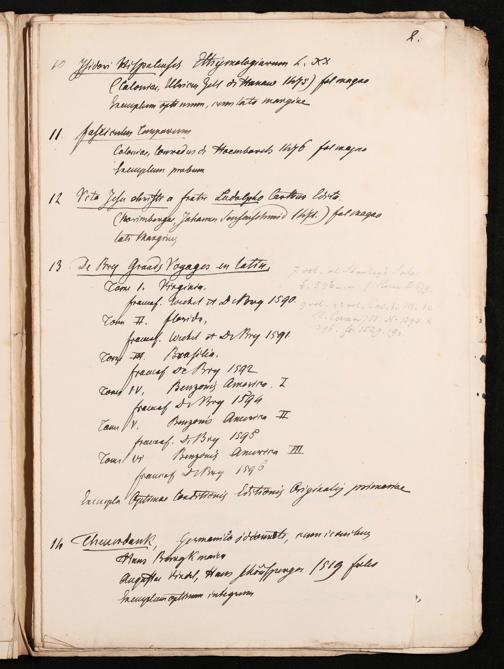 2.
10 Isidori Hispalensis Ethymologiarum L. XX
(Coloniae, Ulricus Zell de Hanau 1473) fol magno
Exemplum optimum, cum lato margine
11 fasciculus temporum
Coloniae, Conradus de Hoemborch 1476 fol magno
Exemplum probum
12 Vita Jesu christi a fratre Ludolpho Cartus. Edita
(Johannes Sensenschmid 147.) fol magno
lato Margine
13 De Bry Grands Voyages en latin,
Tom I. Virginia.
francof. Wechel et De Bry 1590
Tom II. florida,
francof. Wechel et De Bry 1591
Tom III. Brasilia.
francof De Bry 1592
Tom IV, Benzonis America. I
francof De Bry 1594
Tom V. Benzonis America II
francof. De Bry 1595
Tom VI Benzonis America III
francof De Bry 1596
Exempla Optimae Conditionis Editionis Originalis primariae
7 vol. at Stanley's Sale
14 Theuerdank, cum iconibus
Hans
Augustae Vindel, Hans Schönsperger 1519 folio
Exemplum optimum integrum